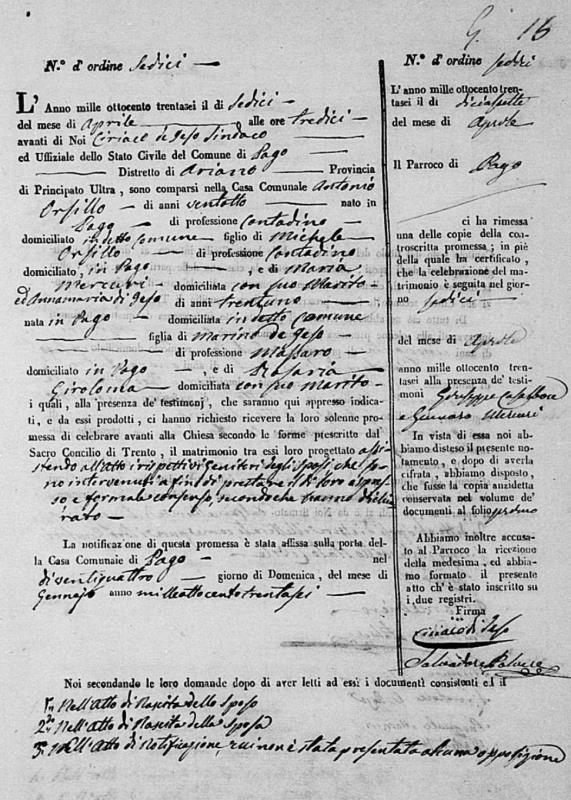 G. 16
N.º d'ordine Sedici
L' Anno mille ottocento trentasei il dì Sedici
del mese di Aprile alle ore tredici
avanti di Noi Ciriaco de Jeso Sindaco
ed Uffiziale dello Stato Civile del Comune di Pago
Distretto di Ariano Provincia
di Principato Ultra, sono comparsi nella Casa Comunale Antonio
Orsillo di anni ventotto nato in
Pago di professione Contadino
domiciliato in detto Comune figlio di Michele
Orsillo di professione Contadino
domiciliato, in Pago, e di Maria
Mercuri domiciliata con suo Marito
ed Annamaria di Jeso di anni trentuno
nata in Pago domiciliata in detto Comune
figlia di Marino de Jeso
di professione Massaro
domiciliato in Pago, e di Rosaria
Girolama domiciliata con suo Marito
i quali, alla presenza de' testimonj, che saranno qui appresso indica-
ti, e da essi prodotti, ci hanno richiesto ricevere la loro solenne pro-
messa di celebrare avanti alla Chiesa secondo le forme prescritte dal
Sacro Concilio di Trento, il matrimonio tra essi loro progettato assi
stendo all'atto i rispettivi Genitori degli Sposi, che so
no intervenuti a fin di prestare il di loro espres
so e formale consenso secondo che hanno dichia
rato
La notificazione di questa promessa è stata affissa sulla porta del-
la Casa Comunale di Pago nel
dì ventiquattro giorno di Domenica, del mese di
Gennajo anno mille ottocento trentasei
N.º d'ordine sedici
L'anno mille ottocento tren-
tasei il dì diciassette
del mese di Aprile
Il Parroco di Pago
ci ha rimessa
una delle copie della con-
troscritta promessa; in piè
della quale ha certificato,
che la celebrazione del ma-
trimonio è seguita nel gior-
no sedici
del mese di Aprile
anno mille ottocento tren-
tasei alla presenza de' testi-
moni Giuseppe
e Gennaro Mercuri
In vista di essa noi ab-
biamo disteso il presente no-
tamento, e dopo di averla
cifrata, abbiamo disposto,
che fusse la copia anzidetta
conservata nel volume de'
documenti al foglio
Abbiamo inoltre accusa-
to al Parroco la ricezione
della medesima, ed abbia-
mo formato il presente
atto ch' è stato inscritto su
i due registri.
Firma
Ciriaco di Jeso
Salvadore
Noi secondando le loro domande dopo di aver letti ad essi i documenti consistenti ed il
1.º Nell'Atto di Nascita dello Sposo
2.º Nell'Atto di Nascita della Sposa
3.º Nell'Atto di Notificazione, cui non è stata presentata alcuna opposizione